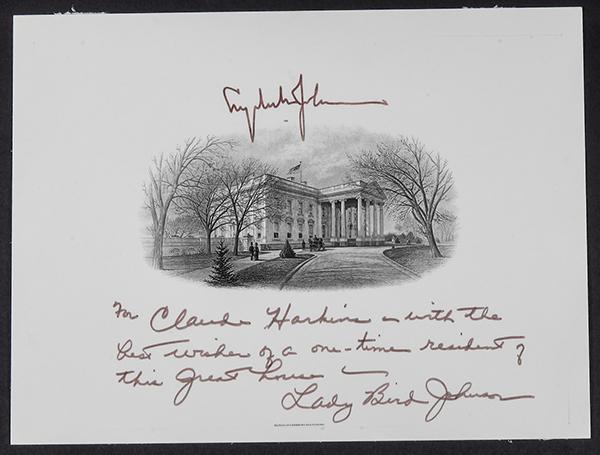 Lyndon B. Johnson
For Claude Harkins – with the
best wishes of a one-time resident of
this great house –
Lady Bird Johnson